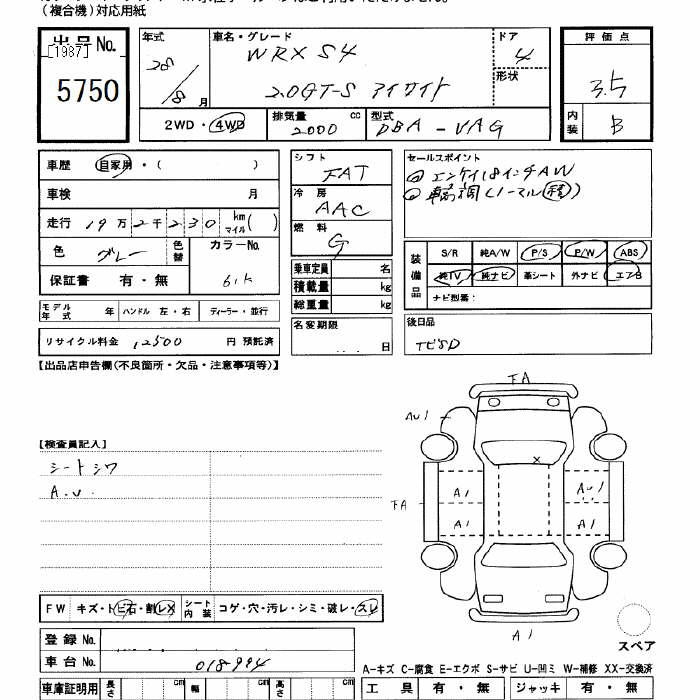 (複合機)対応用紙
出品No.
[1987]
5750
年式
28/8月
車名・グレード
WRX S4
2.0GT-S アイサイト
ドア
4
形状
評価点
3.5
内装
B
2WD・4WD
排気量 cc
2000
型式
DBA-VAG
車歴 自家用・( )
車検 月
走行 19万2千230 km マイル( )
色 グレー 色替 カラーNo.
61K
保証書 有・無
モデル年式 年 ハンドル 左・右 ディーラー・並行
リサイクル料金 12500 円 預託済
シフト
FAT
冷房
AAC
燃料
G
乗車定員 名
積載量 kg
総重量 kg
名変期限
日
セールスポイント
エンケイ18インチAW
装備品
S/R 純A/W P/S P/W ABS
純TV 純ナビ 革シート 外ナビ エアB
ナビ型番:
後日品
【出品店申告欄(不良箇所・欠品・注意事項等)】
【検査員記入】
シートシワ
A.U.
FA
AU1
FA
A1
AU1
A1
A1
A1
FW キズ・トビ石・割レX シート内装 コゲ・穴・汚レ・シミ・破レ・スレ
登録No.
車台No. 018994
スペア
A-キズ C-腐食 E-エクボ S-サビ U-凹ミ W-補修 XX-交換済
車庫証明用 長さ cm 幅 cm 高さ cm
工具 有・無 ジャッキ 有・無